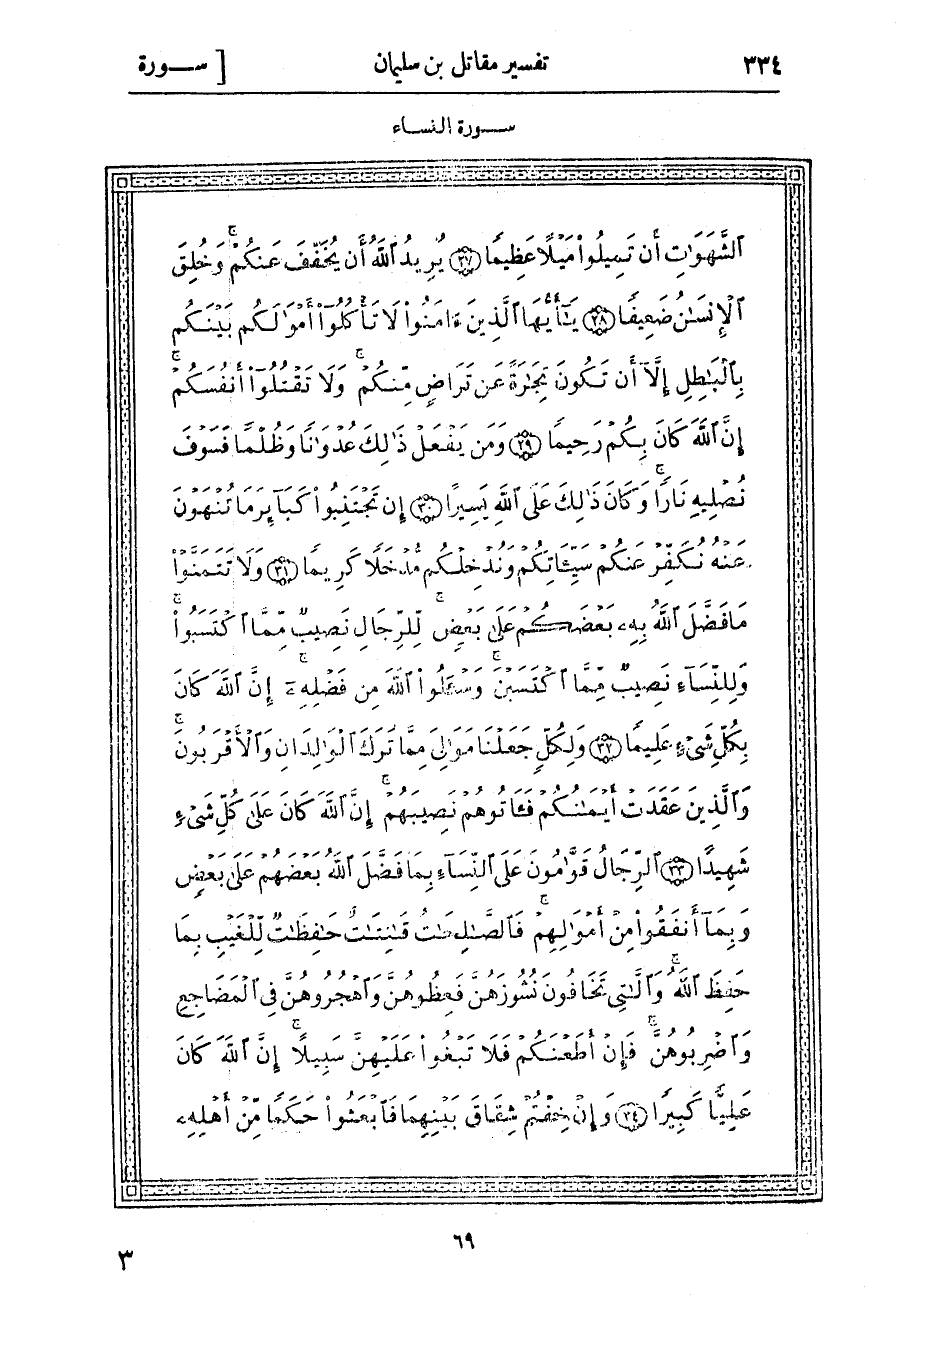 ٣٣٤ تفسير مقاتل بن سليمان [ ســورة
ســورة النساء
ٱلشَّهَوَٰتِ أَن تَمِيلُوا۟ مَيْلًا عَظِيمًا ٢٧ يُرِيدُ ٱللَّهُ أَن يُخَفِّفَ عَنكُمْ ۚ وَخُلِقَ
ٱلْإِنسَٰنُ ضَعِيفًا ٢٨ يَٰٓأَيُّهَا ٱلَّذِينَ ءَامَنُوا۟ لَا تَأْكُلُوٓا۟ أَمْوَٰلَكُم بَيْنَكُم
بِٱلْبَٰطِلِ إِلَّآ أَن تَكُونَ تِجَٰرَةً عَن تَرَاضٍ مِّنكُمْ ۚ وَلَا تَقْتُلُوٓا۟ أَنفُسَكُمْ ۚ
إِنَّ ٱللَّهَ كَانَ بِكُمْ رَحِيمًا ٢٩ وَمَن يَفْعَلْ ذَٰلِكَ عُدْوَٰنًا وَظُلْمًا فَسَوْفَ
نُصْلِيهِ نَارًا ۚ وَكَانَ ذَٰلِكَ عَلَى ٱللَّهِ يَسِيرًا ٣٠ إِن تَجْتَنِبُوا۟ كَبَآئِرَ مَا تُنْهَوْنَ
عَنْهُ نُكَفِّرْ عَنكُمْ سَيِّـَٔاتِكُمْ وَنُدْخِلْكُم مُّدْخَلًا كَرِيمًا ٣١ وَلَا تَتَمَنَّوْا۟
مَا فَضَّلَ ٱللَّهُ بِهِۦ بَعْضَكُمْ عَلَىٰ بَعْضٍ ۚ لِّلرِّجَالِ نَصِيبٌ مِّمَّا ٱكْتَسَبُوا۟ ۚ
وَلِلنِّسَآءِ نَصِيبٌ مِّمَّا ٱكْتَسَبْنَ ۚ وَسْـَٔلُوا۟ ٱللَّهَ مِن فَضْلِهِۦٓ ۚ إِنَّ ٱللَّهَ كَانَ
بِكُلِّ شَىْءٍ عَلِيمًا ٣٢ وَلِكُلٍّ جَعَلْنَا مَوَٰلِىَ مِمَّا تَرَكَ ٱلْوَٰلِدَانِ وَٱلْأَقْرَبُونَ ۚ
وَٱلَّذِينَ عَقَدَتْ أَيْمَٰنُكُمْ فَـَٔاتُوهُمْ نَصِيبَهُمْ ۚ إِنَّ ٱللَّهَ كَانَ عَلَىٰ كُلِّ شَىْءٍ
شَهِيدًا ٣٣ ٱلرِّجَالُ قَوَّٰمُونَ عَلَى ٱلنِّسَآءِ بِمَا فَضَّلَ ٱللَّهُ بَعْضَهُمْ عَلَىٰ بَعْضٍ
وَبِمَآ أَنفَقُوا۟ مِنْ أَمْوَٰلِهِمْ ۚ فَٱلصَّٰلِحَٰتُ قَٰنِتَٰتٌ حَٰفِظَٰتٌ لِّلْغَيْبِ بِمَا
حَفِظَ ٱللَّهُ ۚ وَٱلَّٰتِى تَخَافُونَ نُشُوزَهُنَّ فَعِظُوهُنَّ وَٱهْجُرُوهُنَّ فِى ٱلْمَضَاجِعِ
وَٱضْرِبُوهُنَّ ۖ فَإِنْ أَطَعْنَكُمْ فَلَا تَبْغُوا۟ عَلَيْهِنَّ سَبِيلًا ۚ إِنَّ ٱللَّهَ كَانَ
عَلِيًّا كَبِيرًا ٣٤ وَإِنْ خِفْتُمْ شِقَاقَ بَيْنِهِمَا فَٱبْعَثُوا۟ حَكَمًا مِّنْ أَهْلِهِۦ
٦٩
٣